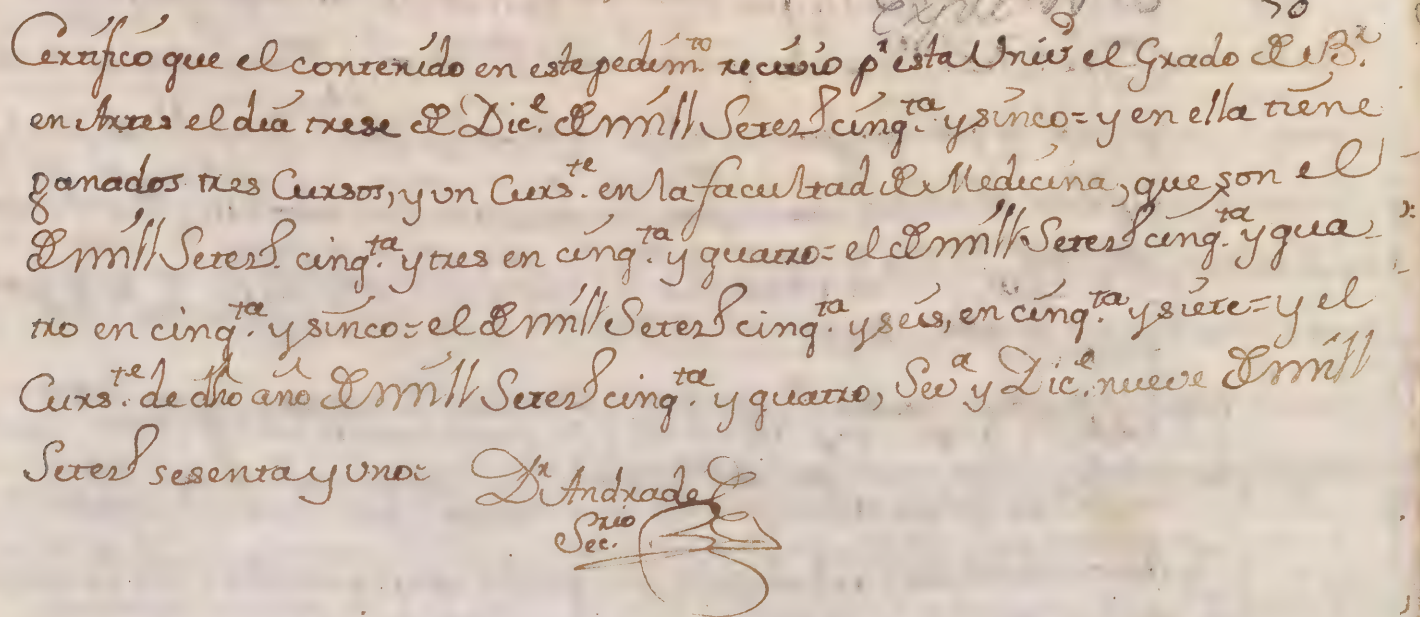 Certifico que el contenido en este pedim.to recivio pr esta Univd el Grado de Br.
en Artes el dia trese de Dice. de mill Setess cinq.ta y sinco = y en ella tiene
ganados tres Cursos, y un Curs.te en la facultad de Medicina, que son el
de mill Setess. cinq.ta y tres en cinq.ta y quatro = el de mill Setess cinq.ta y qua-
tro en cinq.ta y sinco = el de mill Setess cinq.ta y seis, en cinq.ta y siete = y el
Curs.te de dho año de mill Setess cinq.ta y quatro, Seva y Dice. nueve de mill
Setess sesenta y uno =
Dr Andrade
Sec.rio